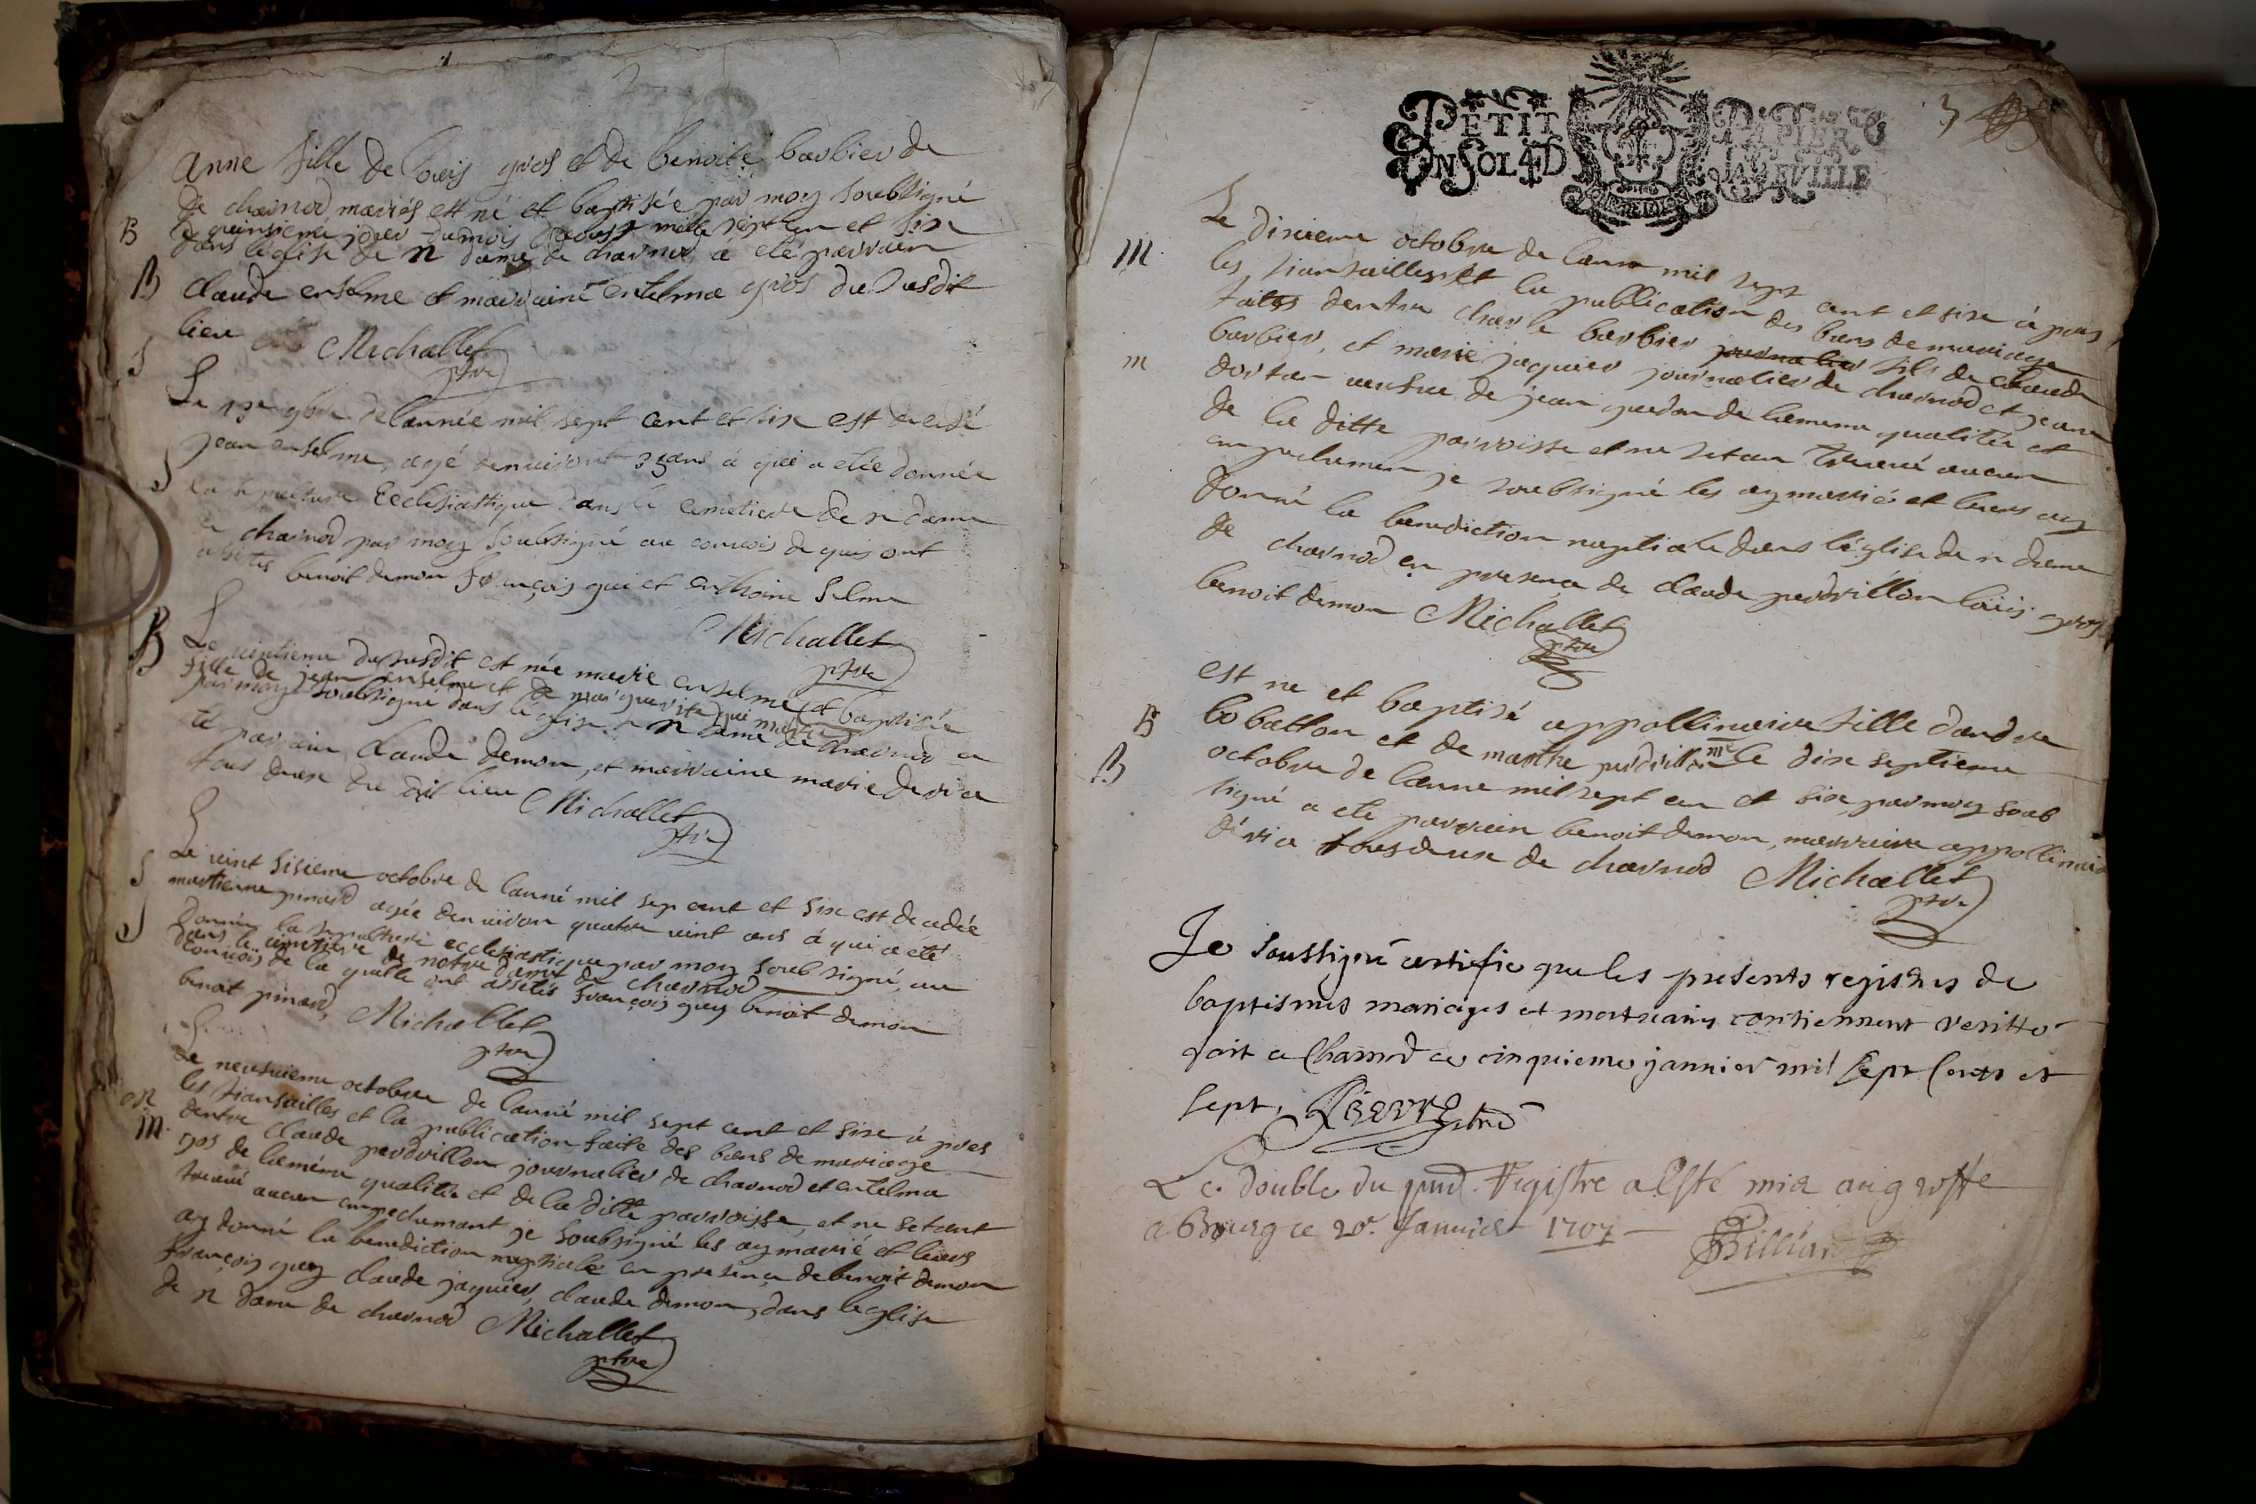 anne fille de louis gros et de benoite barbier de
de charnod mariés est né et baptisée par moy soubsigné
B
le quinsieme jour du mois daoust mille sept cen et sise
dans leglise de n dame de charnod a eté parrain
B claude enselme et marraine entelma gros du susdit
lieu Michallet
ptre
S
Le 9bre de lannée mil sept cent et sise est decedé
jean enselme, agé denuiront 35 ans a qui a etée donnée
S la sepulture Ecclesiastique dans le cemetiere de n dame
de charnod par moy soubsigné au convois de quis ont
assistes benoit demon françois gui et anthoine selme
Michallet
ptre
B Le vintieme du susdit est née marie enselme et baptisée
fille de jean enselme et de marguerite gui mariés
par moy soubsigné dans leglise de n dame de charnod a
eté parrain claude demon, et marraine marie devia
tous deux du dit lieu Michallet
ptre
S Le vint sisieme octobre de lanné mil sep cent et sise est decedée
martienne pinard agée denuiron quatre vint ans a qui a eté
S donnée la sepulture ecclesiastique par moy soub signé, au
dans le cimetiere de notre dame de charnod
convois de la quelle ont assistés françois guy benoit demon
benoit pinard, Michallet
ptre
Le neufvieme octobre de lanné mil sept cent et sise a pres
m les fiansailles et la publication faite des bans de mariage
m. dentre claude perdrillon journalier de charnod et entelma
gros de lamême qualitée et de la ditte parroisse, et ne setant
treuvé aucun empechement je soubsigné les ay marié et leurs
ay donné la benediction nuptiale en presence de benoit demon
françois guy claude jaquier, claude demon, dans leglise
de n dame de charnod Michallet
ptre
3
PETIT PAPIER
UN SOL 4 D LA FEUILLE
Le disieme octobre de lanne mil sept cent et sise a pres
M. les fiansailles et la publication des bans de mariage
faites dentre charle barbier journalier fils de claude
m barbier, et marie jaquier journalier de charnod et jeane
dortan veufve de jean guedan de lamême qualitée et
de la ditte parroisse et ne setan treuvé aucun
empechemen je soubsigné les ay marié et leurs ay
donné la benediction nuptiale dans léglise de n dame
de charnod en presence de claude perdrillon loüis gros
benoit demon Michallet
ptre
est ne et baptisé appollinaire fille dandre
B bobatton et de marthe perdrillon me le dise septieme
B octobre de lanne mil sept cen et sise par moy soub
signé a eté parrain benoit demon, marraine appollinaire
dévia tous deux de charnod Michallet
ptre
Je soussigné certifie que les presents registres de
baptismes mariages et mortuaires contiennent veritté
fait a Charnod ce cinquieme janvier mil sept Cents et
sept.
Le double du pnt Registre a Esté mis au greffe
a Bourg ce 20e Janvier 1707
Billiard